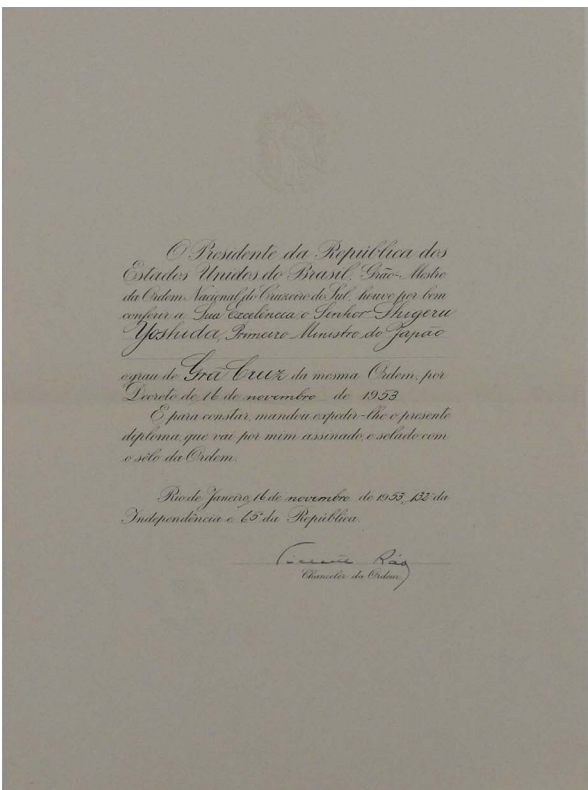 O Presidente da República dos
Estados Unidos do Brasil, Grão-Mestre
da Ordem Nacional do Cruzeiro do Sul, houve por bem
conferir a Sua Excelência o Senhor Shigeru
Yoshida, Primeiro Ministro do Japão
o grau de Grã Cruz da mesma Ordem, por
Decreto de 16 de novembro de 1953
E para constar, mandou expedir-lhe o presente
diploma, que vai por mim assinado e selado com
o sêlo da Ordem.
Rio de Janeiro, 16 de novembro de 1953, 132º da
Independência e 65º da República.
Vicente Ráo
Chanceler da Ordem